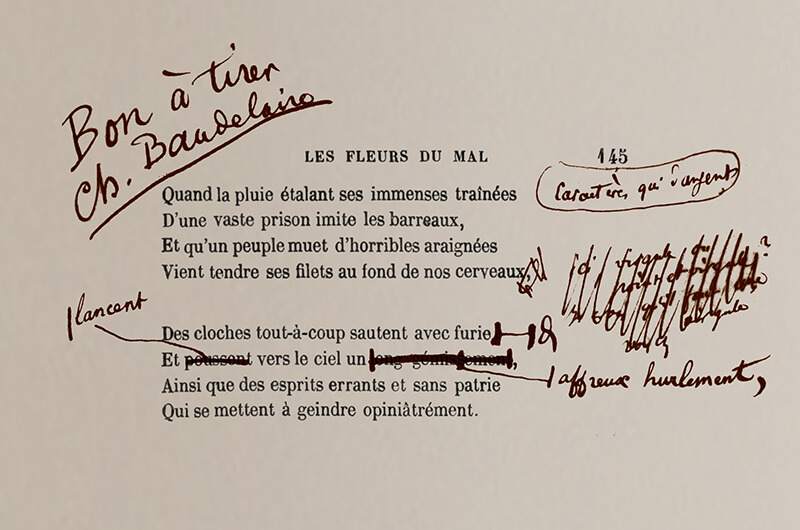 Bon à tirer
Ch. Baudelaire
LES FLEURS DU MAL 145
Quand la pluie étalant ses immenses traînées
D'une vaste prison imite les barreaux,
Et qu'un peuple muet d'horribles araignées
Vient tendre ses filets au fond de nos cerveaux,
lancent
Des cloches tout-à-coup sautent avec furie
Et poussent vers le ciel un long gémissement,
affreux hurlement,
Ainsi que des esprits errants et sans patrie
Qui se mettent à geindre opiniâtrément.